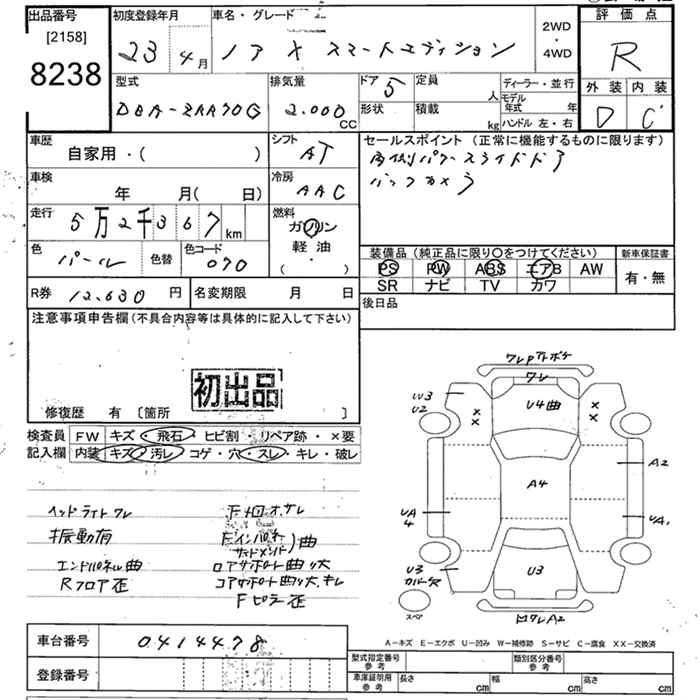 出品番号
[2158]
8238
初度登録年月
23
4月
車名・グレード
ノア X スマートエディション
2WD
・
4WD
評価点
R
外装 内装
D C
型式
DBA-ZRR70G
排気量
2.000
CC
ドア 5
定員
人
形状
積載
kg
ディーラー・並行
モデル年式 年
ハンドル 左・右
車歴
自家用・( )
シフト
AT
セールスポイント(正常に機能するものに限ります)
両側パワースライドドア
バックカメラ
車検
年 月( 日)
冷房
AAC
走行
5万2千367
km
燃料
ガソリン
軽油
( ・ )
色
パール
色替
色コード
070
装備品(純正品に限り〇をつけてください)
PS PW ABS エアB AW
SR ナビ TV カワ
新車保証書
有・無
R券 12,630 円
名変期限 月 日
後日品
注意事項申告欄(不具合内容等は具体的に記入して下さい)
初出品
修復歴 有 [箇所 ]
検査員
記入欄
FW キズ・飛石・ヒビ割・リペア跡・×要
内装 キズ・汚レ・コゲ・穴・スレ・キレ・破レ
ヘッドライトワレ
振動有
エンドパネル曲
Rフロア歪
Fインパネ
サイドメンバ)曲
コアサポート曲リ大
コアサポート曲リ大、キレ
Fピラ歪
ワレ
U4曲
W3
U2
×
×
×
×
A2
A4
UA
4
UA1
U3
U3
スペア
ワレA2
A-キズ E-エクボ U-凹み W-補修跡 S-サビ C-腐食 XX-交換済
車台番号
0414478
登録番号
型式指定番号
参考
類別区分番号
参考
車庫証明用
参考
長さ cm
幅 cm
高さ cm